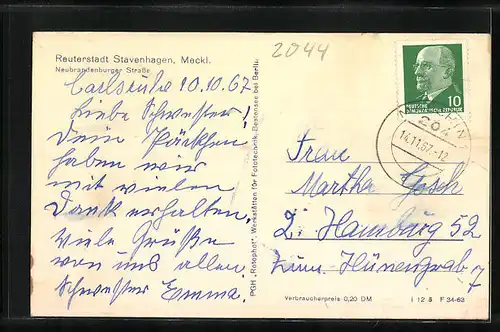 Reuterstadt Stavenhagen, Meckl.
Neubrandenburger Straße
2044
Carlsruhe 10.10.67
Liebe Schwester!
Dein Päckchen
haben wir
mit vielen
Dank erhalten.
Viele Grüße
von uns allen
Schwester Emma.
PGH „Rotophot“, Werkstätten für Fototechnik, Bestensee bei Berlin
DEUTSCHE
DEMOKRATISCHE REPUBLIK
10
204
14.11.67-12
Frau
Martha Gosch
2. Hamburg 52
Zum Hünengrab 7
Verbraucherpreis 0,20 DM
F 34-63